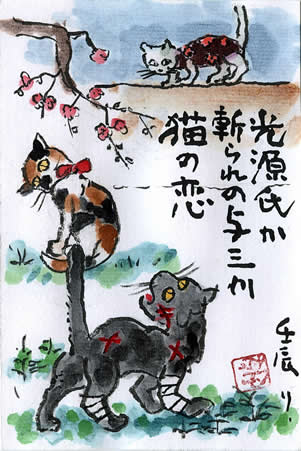 光源氏か
斬られの与三か
猫の恋
壬辰